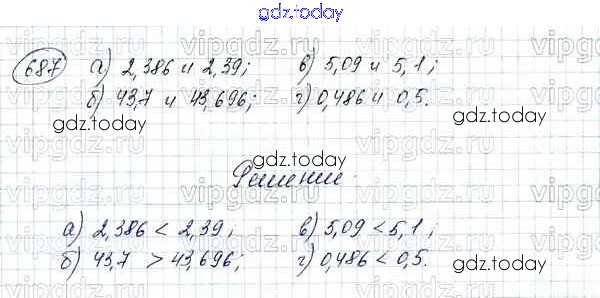 gdz.today
687 а) 2,386 и 2,39; в) 5,09 и 5,1;
б) 43,7 и 43,696; г) 0,486 и 0,5.
gdz.today gdz.today
Решение.
gdz.today gdz.today
а) 2,386 < 2,39; в) 5,09 < 5,1;
б) 43,7 > 43,696; г) 0,486 < 0,5.
gdz.today gdz.today